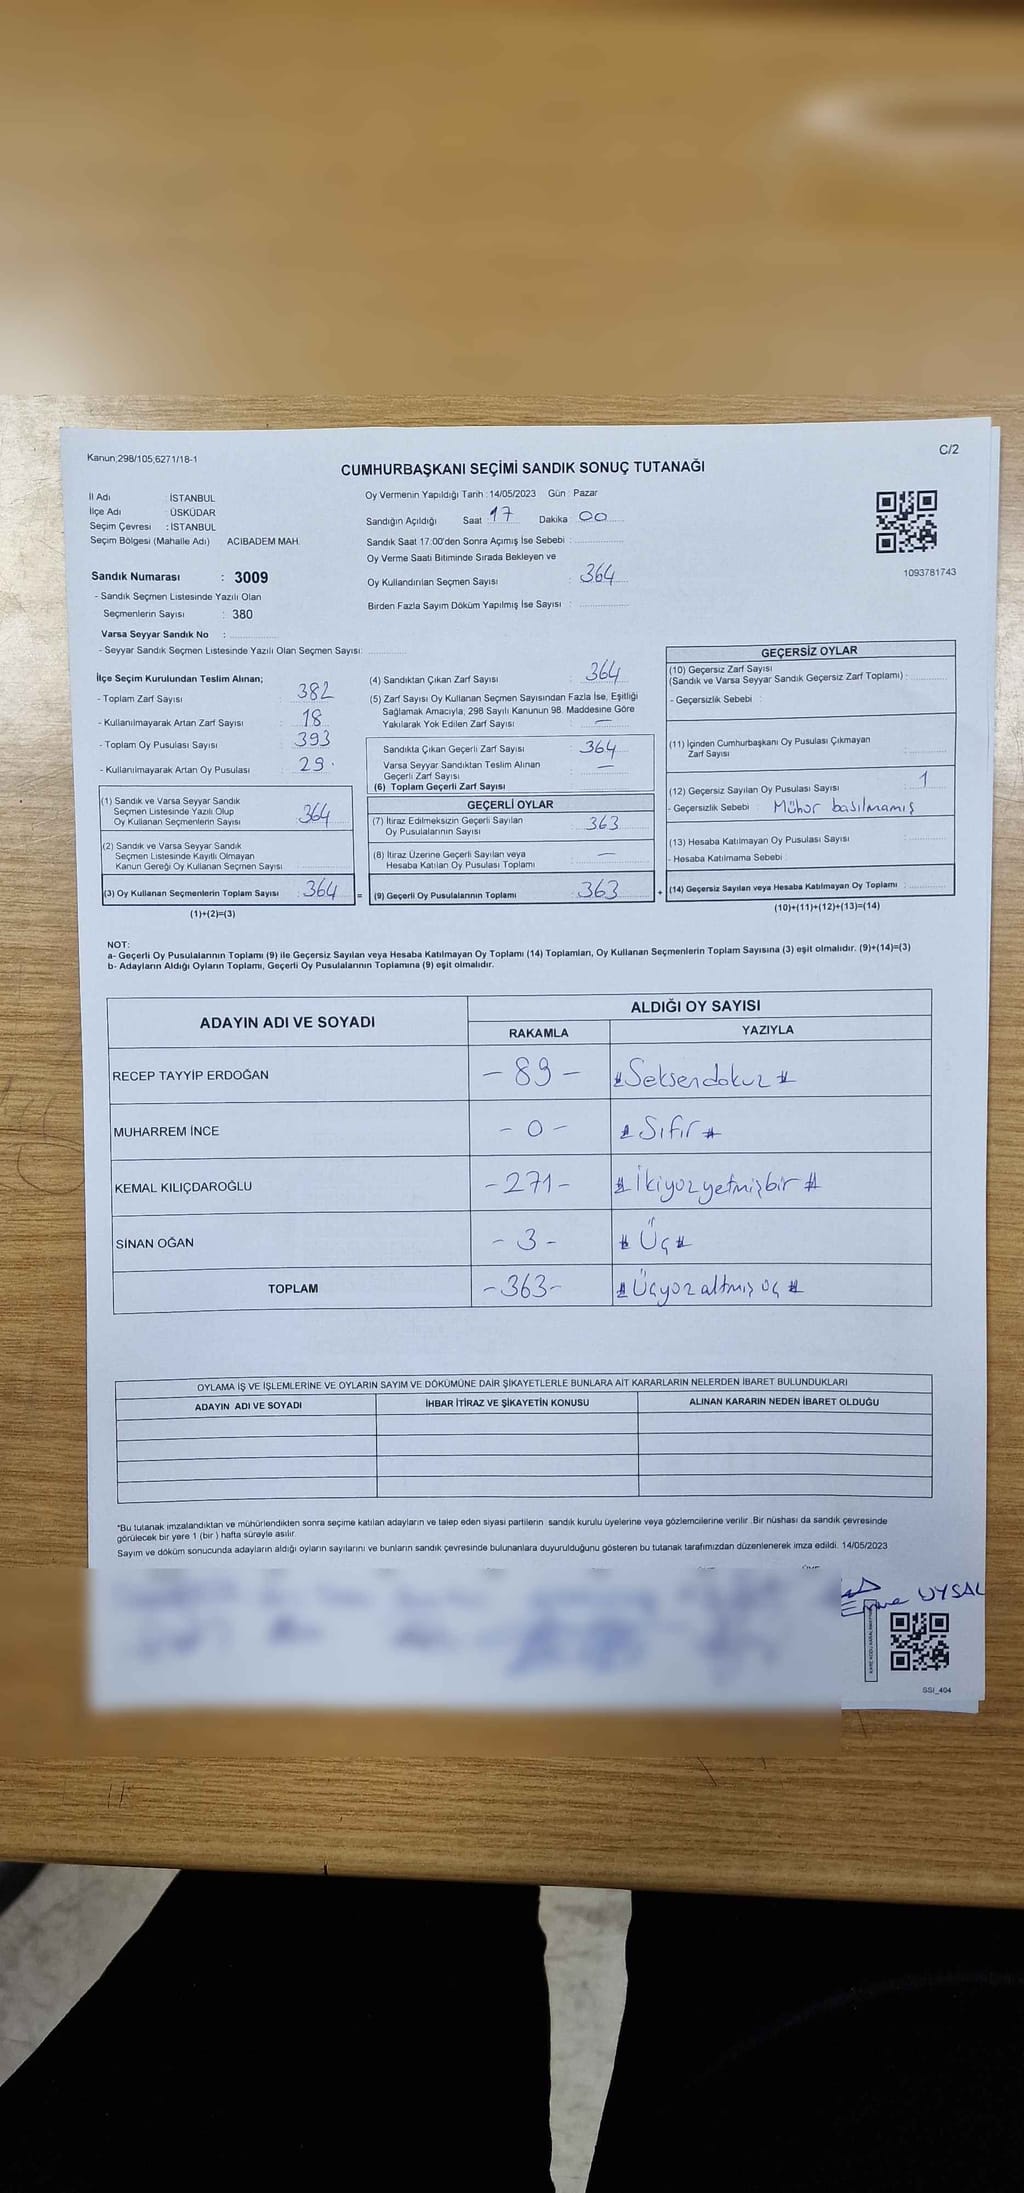 Kanun;298/105,6271/18-1
C/2
CUMHURBAŞKANI SEÇİMİ SANDIK SONUÇ TUTANAĞI
İl Adı : İSTANBUL
İlçe Adı : ÜSKÜDAR
Seçim Çevresi : İSTANBUL
Seçim Bölgesi (Mahalle Adı) ACIBADEM MAH.
Oy Vermenin Yapıldığı Tarih : 14/05/2023 Gün : Pazar
Sandığın Açıldığı Saat 17 Dakika 00
Sandık Saat 17:00'den Sonra Açımış İse Sebebi :
Oy Verme Saati Bitiminde Sırada Bekleyen ve
Oy Kullandırılan Seçmen Sayısı : 364
Birden Fazla Sayım Döküm Yapılmış İse Sayısı :
1093781743
Sandık Numarası : 3009
- Sandık Seçmen Listesinde Yazılı Olan
Seçmenlerin Sayısı : 380
Varsa Seyyar Sandık No :
- Seyyar Sandık Seçmen Listesinde Yazılı Olan Seçmen Sayısı:
İlçe Seçim Kurulundan Teslim Alınan;
- Toplam Zarf Sayısı : 382
- Kullanılmayarak Artan Zarf Sayısı : 18
- Toplam Oy Pusulası Sayısı : 393
- Kullanılmayarak Artan Oy Pusulası : 29
(1) Sandık ve Varsa Seyyar Sandık
Seçmen Listesinde Yazılı Olup
Oy Kullanan Seçmenlerin Sayısı : 364
(2) Sandık ve Varsa Seyyar Sandık
Seçmen Listesinde Kayıtlı Olmayan
Kanun Gereği Oy Kullanan Seçmen Sayısı :
(3) Oy Kullanan Seçmenlerin Toplam Sayısı : 364 =
(1)+(2)=(3)
(4) Sandıktan Çıkan Zarf Sayısı : 364
(5) Zarf Sayısı Oy Kullanan Seçmen Sayısından Fazla İse, Eşitliği
Sağlamak Amacıyla, 298 Sayılı Kanunun 98. Maddesine Göre
Yakılarak Yok Edilen Zarf Sayısı : —
Sandıkta Çıkan Geçerli Zarf Sayısı : 364
Varsa Seyyar Sandıktan Teslim Alınan
Geçerli Zarf Sayısı : —
(6) Toplam Geçerli Zarf Sayısı :
GEÇERLİ OYLAR
(7) İtiraz Edilmeksizin Geçerli Sayılan
Oy Pusulalarının Sayısı : 363
(8) İtiraz Üzerine Geçerli Sayılan veya
Hesaba Katılan Oy Pusulası Toplamı : —
(9) Geçerli Oy Pusulalarının Toplamı : 363 +
GEÇERSİZ OYLAR
(10) Geçersiz Zarf Sayısı
(Sandık ve Varsa Seyyar Sandık Geçersiz Zarf Toplamı) :
- Geçersizlik Sebebi :
(11) İçinden Cumhurbaşkanı Oy Pusulası Çıkmayan
Zarf Sayısı :
(12) Geçersiz Sayılan Oy Pusulası Sayısı : 1
- Geçersizlik Sebebi : Mühür basılmamış
(13) Hesaba Katılmayan Oy Pusulası Sayısı :
- Hesaba Katılmama Sebebi :
(14) Geçersiz Sayılan veya Hesaba Katılmayan Oy Toplamı :
(10)+(11)+(12)+(13)=(14)
NOT:
a- Geçerli Oy Pusulalarının Toplamı (9) ile Geçersiz Sayılan veya Hesaba Katılmayan Oy Toplamı (14) Toplamları, Oy Kullanan Seçmenlerin Toplam Sayısına (3) eşit olmalıdır. (9)+(14)=(3)
b- Adayların Aldığı Oyların Toplamı, Geçerli Oy Pusulalarının Toplamına (9) eşit olmalıdır.
ADAYIN ADI VE SOYADI
ALDIĞI OY SAYISI
RAKAMLA YAZIYLA
RECEP TAYYİP ERDOĞAN -89- #Seksendokuz#
MUHARREM İNCE -0- #Sıfır#
KEMAL KILIÇDAROĞLU -271- #İkiyüzyetmişbir#
SİNAN OĞAN -3- #Üç#
TOPLAM -363- #Üçyüzaltmışüç#
OYLAMA İŞ VE İŞLEMLERİNE VE OYLARIN SAYIM VE DÖKÜMÜNE DAİR ŞİKAYETLERLE BUNLARA AİT KARARLARIN NELERDEN İBARET BULUNDUKLARI
ADAYIN ADI VE SOYADI İHBAR İTİRAZ VE ŞİKAYETİN KONUSU ALINAN KARARIN NEDEN İBARET OLDUĞU
*Bu tutanak imzalandıktan ve mühürlendikten sonra seçime katılan adayların ve talep eden siyasi partilerin sandık kurulu üyelerine veya gözlemcilerine verilir. Bir nüshası da sandık çevresinde
görülecek bir yere 1 (bir) hafta süreyle asılır.
Sayım ve döküm sonucunda adayların aldığı oyların sayılarını ve bunların sandık çevresinde bulunanlara duyurulduğunu gösteren bu tutanak tarafımızdan düzenlenerek imza edildi. 14/05/2023
UYSAL
SSI_404